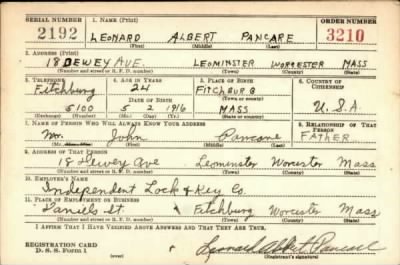 SERIAL NUMBER 1. NAME (Print) ORDER NUMBER
2192 LEONARD ALBERT PANCARE 3210
(First) (Middle) (Last)
2. ADDRESS (Print)
18 DEWEY AVE. LEOMINSTER WORCESTER MASS
(Number and street or R. F. D. number) (Town) (County) (State)
3. TELEPHONE 4. AGE IN YEARS 5. PLACE OF BIRTH 6. COUNTRY OF CITIZENSHIP
Fitchburg 24 FITCHBURG
DATE OF BIRTH (Town or county)
5100 5 2 1916 MASS U.S.A.
(Exchange) (Number) (Mo.) (Day) (Yr.) (State or country)
7. NAME OF PERSON WHO WILL ALWAYS KNOW YOUR ADDRESS 8. RELATIONSHIP OF THAT PERSON
Mr. John Pancare FATHER
(First) (Middle) (Last)
9. ADDRESS OF THAT PERSON
18 Dewey Ave Leominster Worcester Mass
(Number and street or R. F. D. number) (Town) (County) (State)
10. EMPLOYER'S NAME
Independent Lock & Key Co.
11. PLACE OF EMPLOYMENT OR BUSINESS
Daniels St. Fitchburg Worcester Mass
(Number and street or R. F. D. number) (Town) (County) (State)
I AFFIRM THAT I HAVE VERIFIED ABOVE ANSWERS AND THAT THEY ARE TRUE.
REGISTRATION CARD
D. S. S. Form 1 Leonard Albert Pancare
(Registrant's signature)